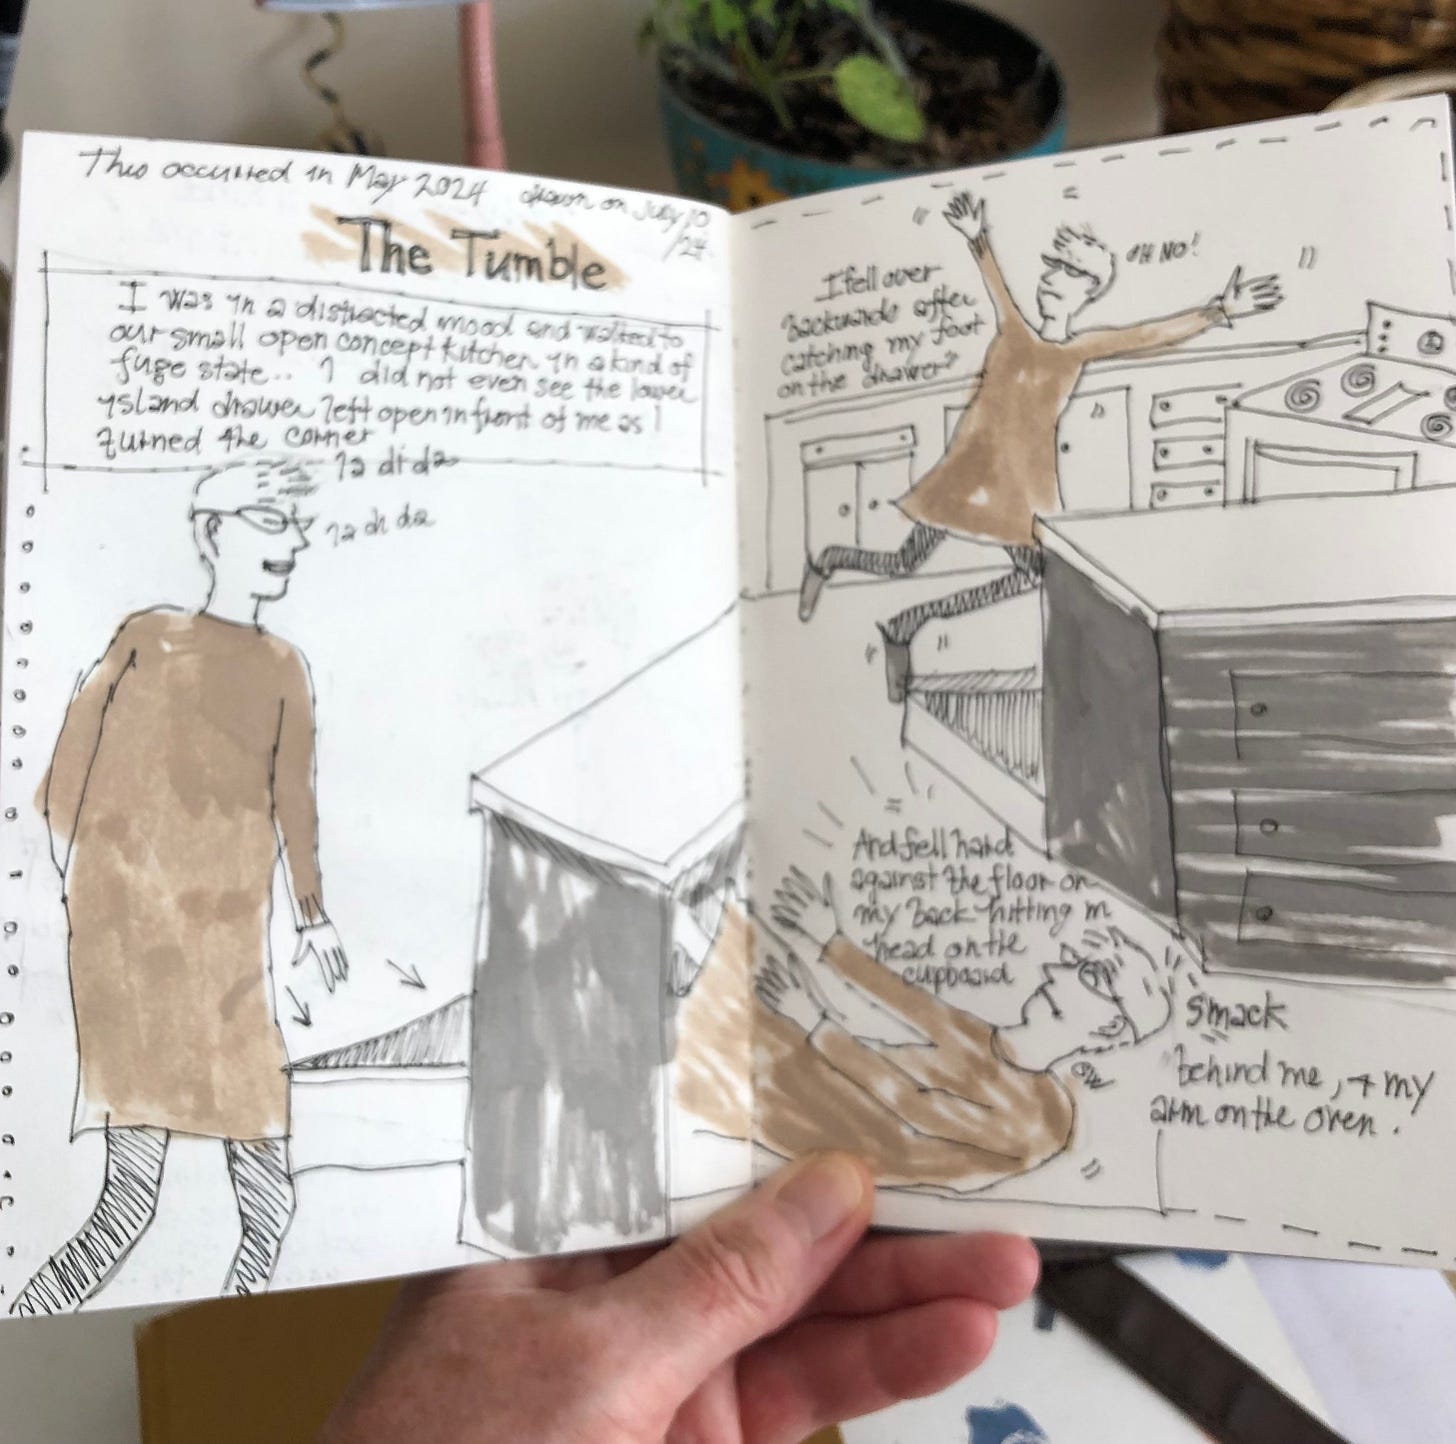 This occurred in May 2024
drawn on July 10
/24.
The Tumble
I was in a distracted mood and walked to
our small open concept kitchen in a kind of
fuge state.. I did not even see the lower
island drawer left open in front of me as I
turned the corner
la di da
la di da
I fell over
backwards after
catching my foot
on the drawer
OH NO!
And fell hard
against the floor on
my back hitting m
head on the
cupboard
smack
behind me, + my
arm on the oven.